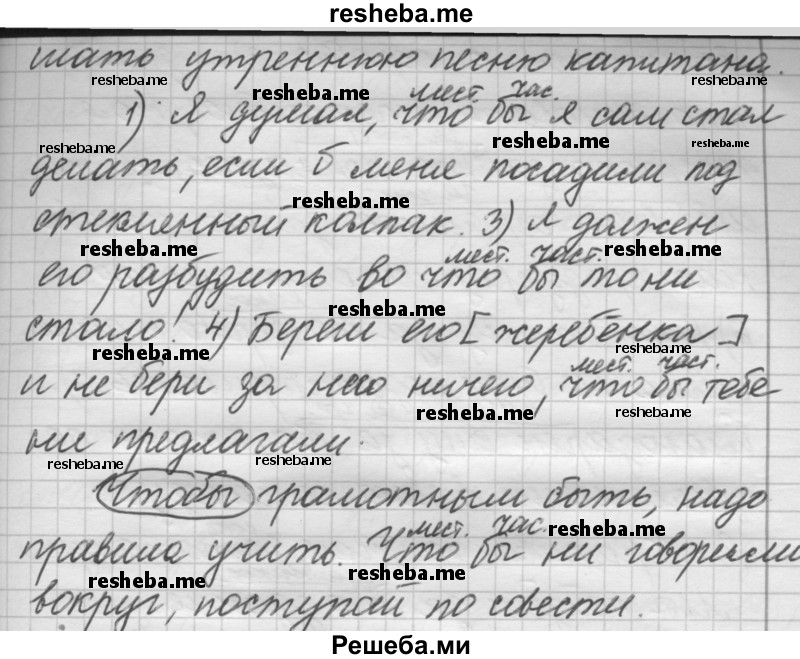 resheba.me
шать утреннюю песню капитана.
resheba.me resheba.me resheba.me
мест. час.
1) Я думал, что бы я сам стал
resheba.me resheba.me resheba.me
делать, если б меня посадили под
resheba.me
стеклянный колпак. 3) Я должен
resheba.me мест. част. resheba.me
его разбудить во что бы то ни
resheba.me
стало! 4) Береги его [жеребёнка]
resheba.me resheba.me
мест. част.
и не бери за него ничего, что бы тебе
resheba.me resheba.me
ни предлагали.
resheba.me resheba.me
Чтобы грамотным быть, надо
мест. час. resheba.me
правила учить. Что бы ни говорили
resheba.me resheba.me
вокруг, поступай по совести.
Решеба.ми